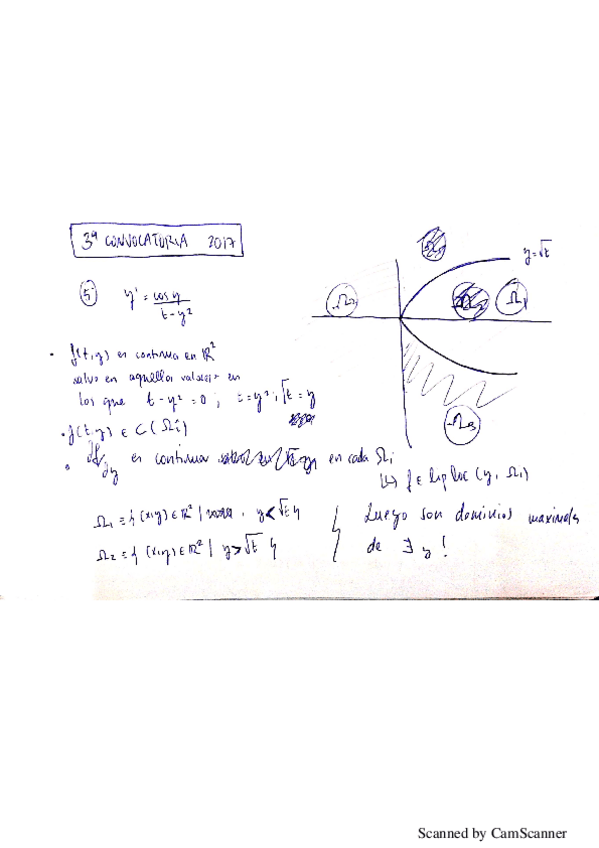 3ª CONVOCATORIA 2017
y=√t
5 y' = cos y / t-y²
Ω₂
Ω₁
· f(t,y) es continua en ℝ²
salvo en aquellos valores en
los que t-y²=0 ; t=y² , √t = y
Ω₃
· f(t,y) ∈ C(Ωi)
· ∂f/∂y es continua en cada Ωi
↳ f ∈ lip loc (y, Ω₁)
Ω₁ = { (x,y) ∈ ℝ² | y<√t }
Ω₂ = { (x,y) ∈ ℝ² | y>√t }
Luego son dominios maximales
de ∃ y !
Scanned by CamScanner